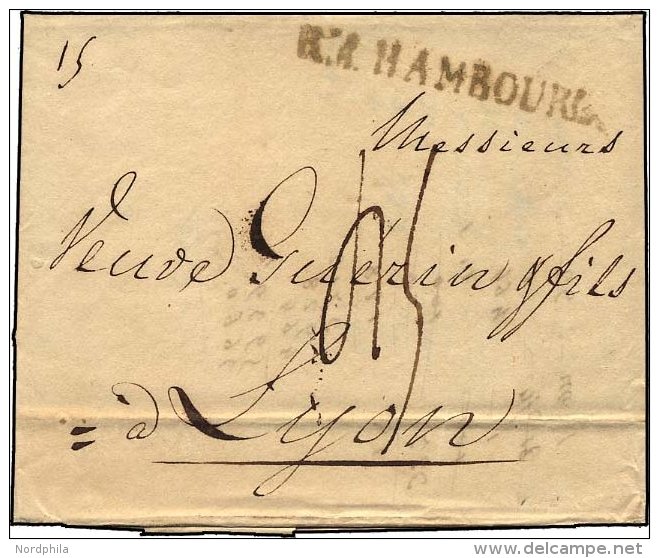 15
R.4. HAMBOURG
Messieurs
Veuve Guerin & fils
= à Lyon
Nordphila
delcampe.net